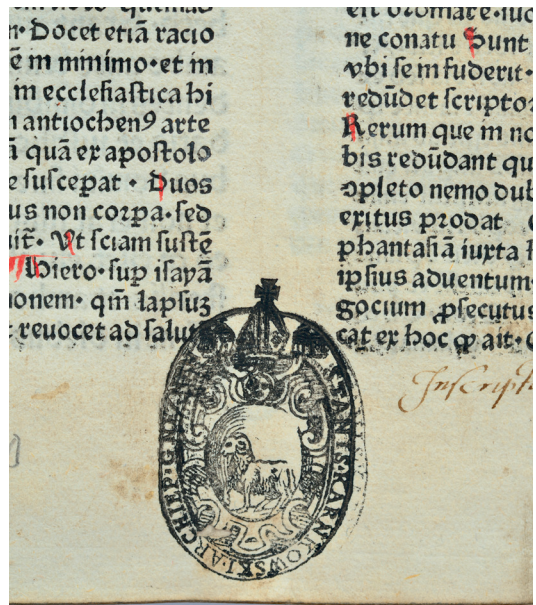 n· Docet etiā racio
ē in minimo· et in
in ecclesiastica hi
n antiochenꝰ arte
ā quā ex apostolo
e suscepat · Duos
us non corpa· sed
uit᷑· Ut sciam sustē
Hiero· sup isayā
onem· qm̄ lapsuꝫ
revocet ad salutē
ne conatu Sunt
vbi se infuderit·
redūdet scriptor
Rerum que in no
bis redūdant qu
ↄpleto nemo dub
exitus prodat
phantasiā iuxta
ipsius aduentum·
gocium ꝓsecutus
cat ex hoc ꝙ ait·
Inscript
STANIS·KARNKOWSKI·ARCHIEP·GN